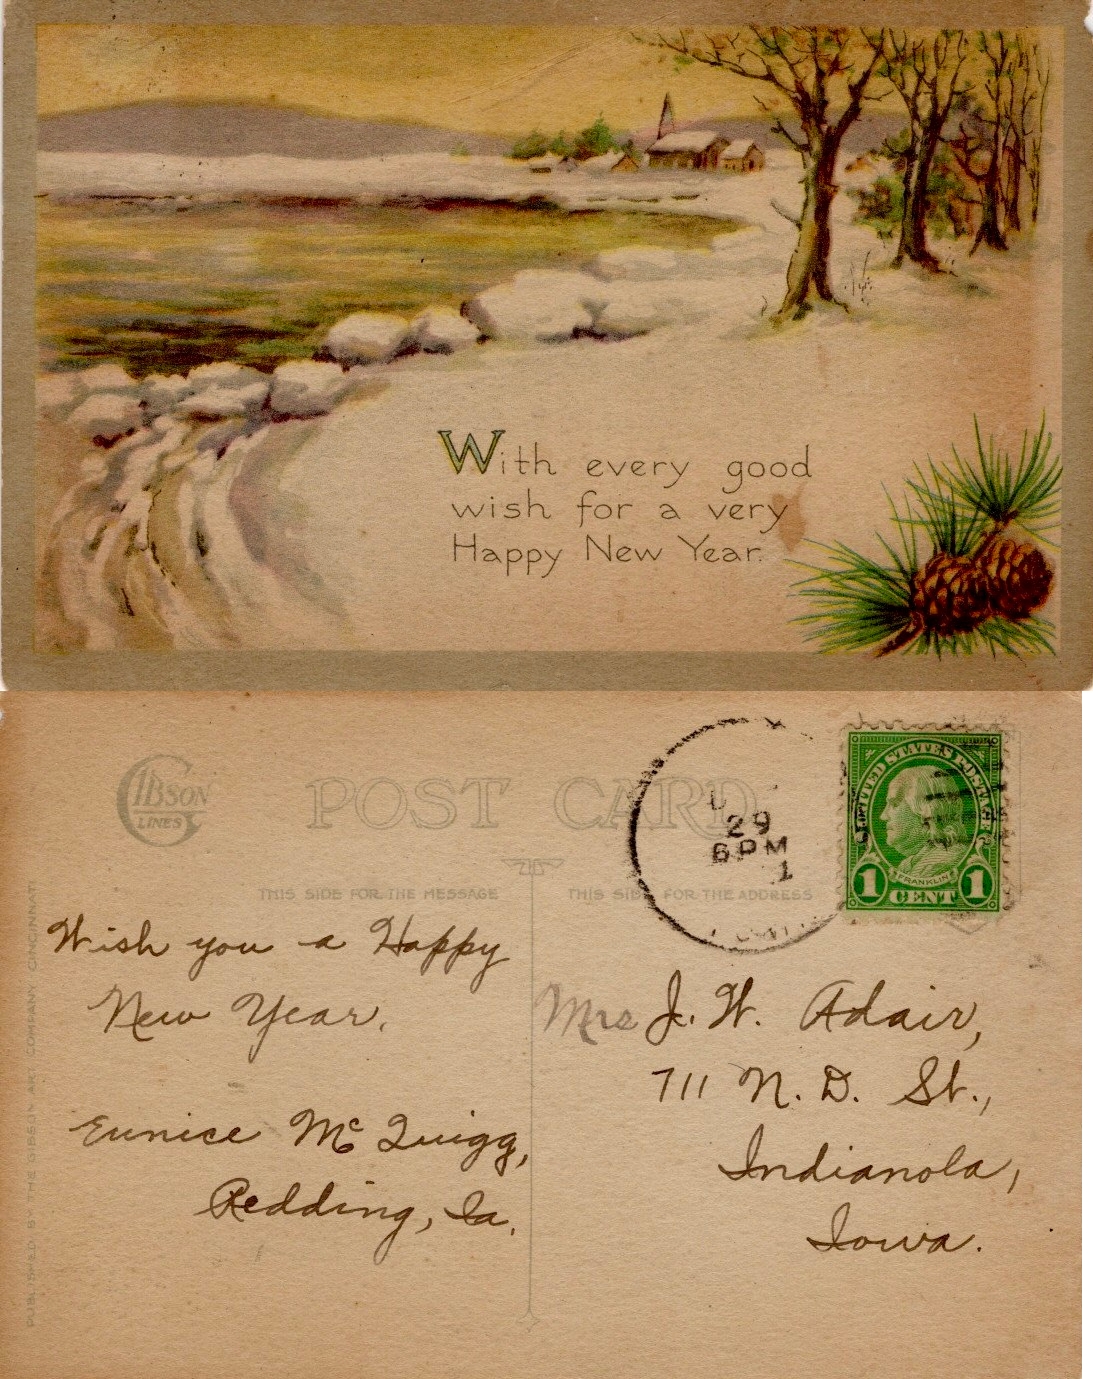 With every good
wish for a very
Happy New Year.
GIBSON
LINES
POST CARD
THIS SIDE FOR THE MESSAGE
THIS SIDE FOR THE ADDRESS
29
6 PM
1
UNITED STATES POSTAGE
FRANKLIN
1 CENT 1
Wish you a Happy
New Year.
Eunice McQuigg,
Redding, Ia.
Mrs J. W. Adair,
711 N. D. St.,
Indianola,
Iowa.
PUBLISHED BY THE GIBSON ART COMPANY, CINCINNATI